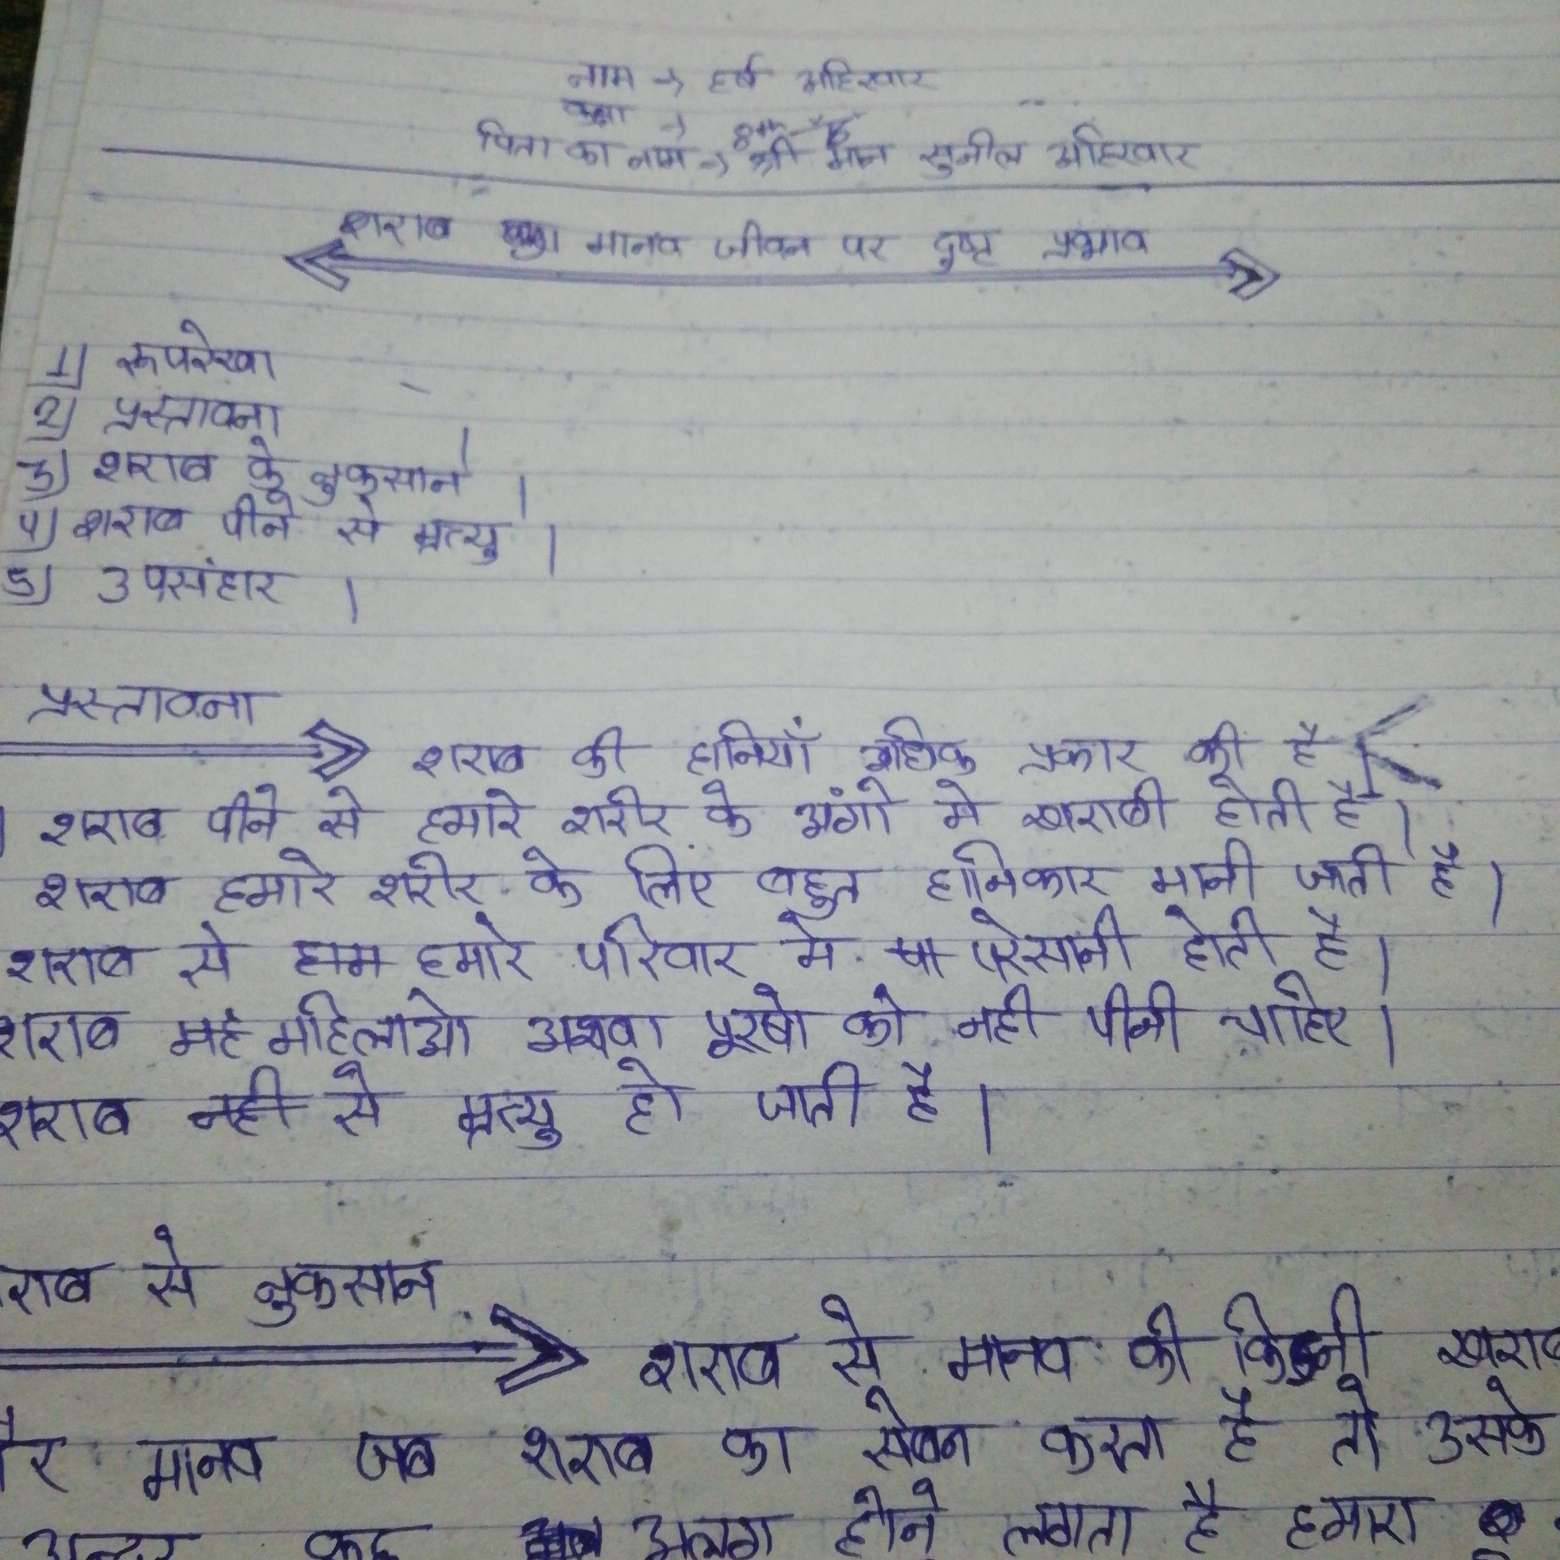 नाम → हर्ष अहिरवार
कक्षा → 8th
पिता का नाम → श्री मान सुनील अहिरवार
शराब का मानव जीवन पर दुष्ट प्रभाव
1) रूपरेखा
2) प्रस्तावना
3) शराब के नुकसान ।
4) शराब पीने से म्रत्यु ।
5) उपसंहार ।
प्रस्तावना
शराब की हानियाँ अधिक प्रकार की है
शराब पीने से हमारे शरीर के अंगो मे खराबी होती है ।
शराब हमारे शरीर के लिए बहुत हानिकार मानी जाती है ।
शराब से हमारे परिवार मे परेसानी होती है ।
शराब महिलाओ अथवा पूरषो को नही पीनी चाहिए ।
शराब नही से म्रत्यु हो जाती है ।
राब से नुकसान
शराब से मानव की किडनी खराब
मानव जब शराब का सेवन करता है तो उसके
अन्दर कुछ अलग होने लगता है हमारा